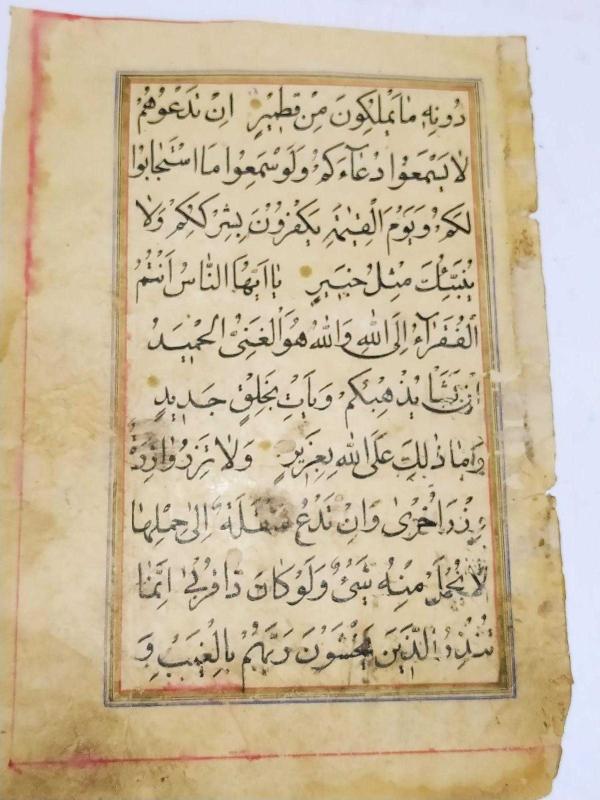 دُونِهِ مَا يَمْلِكُونَ مِنْ قِطْمِيرٍ اِنْ تَدْعُوهُمْ
لَا يَسْمَعُوا دُعَاءَكُمْ وَلَوْ سَمِعُوا مَا اسْتَجَابُوا
لَكُمْ وَيَوْمَ الْقِيٰمَةِ يَكْفُرُونَ بِشِرْكِكُمْ وَلَا
يُنَبِّئُكَ مِثْلُ خَبِيرٍ يَا اَيُّهَا النَّاسُ اَنْتُمُ
الْفُقَرَاءُ اِلَى اللّٰهِ وَاللّٰهُ هُوَ الْغَنِىُّ الْحَمِيدُ
اِنْ يَشَأْ يُذْهِبْكُمْ وَيَأْتِ بِخَلْقٍ جَدِيدٍ
وَمَا ذٰلِكَ عَلَى اللّٰهِ بِعَزِيزٍ وَلَا تَزِرُ وَازِرَةٌ
وِزْرَ اُخْرٰى وَاِنْ تَدْعُ مُثْقَلَةٌ اِلٰى حِمْلِهَا
لَا يُحْمَلْ مِنْهُ شَىْءٌ وَلَوْ كَانَ ذَا قُرْبٰى اِنَّمَا
تُنْذِرُ الَّذِينَ يَخْشَوْنَ رَبَّهُمْ بِالْغَيْبِ وَ